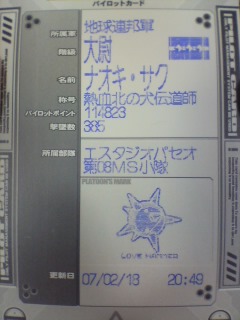 パイロットカード
所属軍 地球連邦軍
階級 大尉
名前 ナオキ・サク
称号 熱血北の犬伝道師
パイロットポイント 114823
撃墜数 385
所属部隊 エスタジオパセオ
第08MS小隊
PLATOON'S MARK
LOVE HAMMER
更新日 07/02/18 20:49